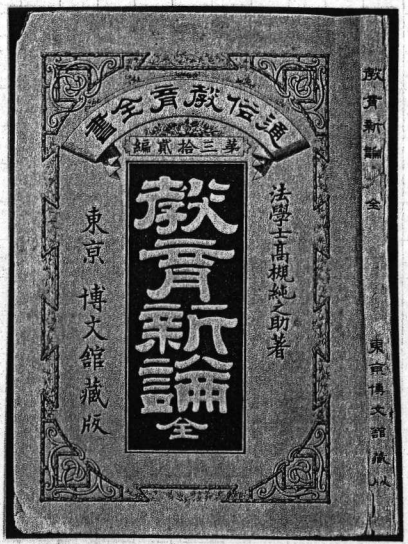 通俗教育全書
第三拾貳編
法學士高槻純之助著
教育新論 全
東京 博文館藏版
教育新論 全
東京博文館藏版